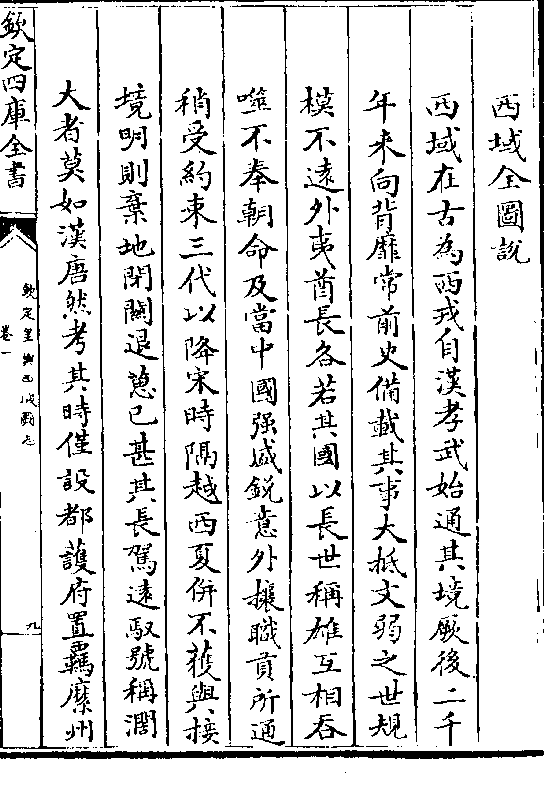 西域全圖說
西域在古為西戎自漢孝武始通其境厥後二千
年來向背靡常前史備載其事大抵文弱之世規
模不遠外夷酋長各若其國以長世稱雄互相吞
噬不奉朝命及當中國强盛銳意外攘職貢所通
稍受約束三代以降宋時隔越西夏併不獲與接
境明則棄地閉關退葸已甚其長駕遠馭號稱濶
大者莫如漢唐然考其時僅設都護府置羈縻州
欽定四庫全書
欽定皇輿西域圖志
卷一
九